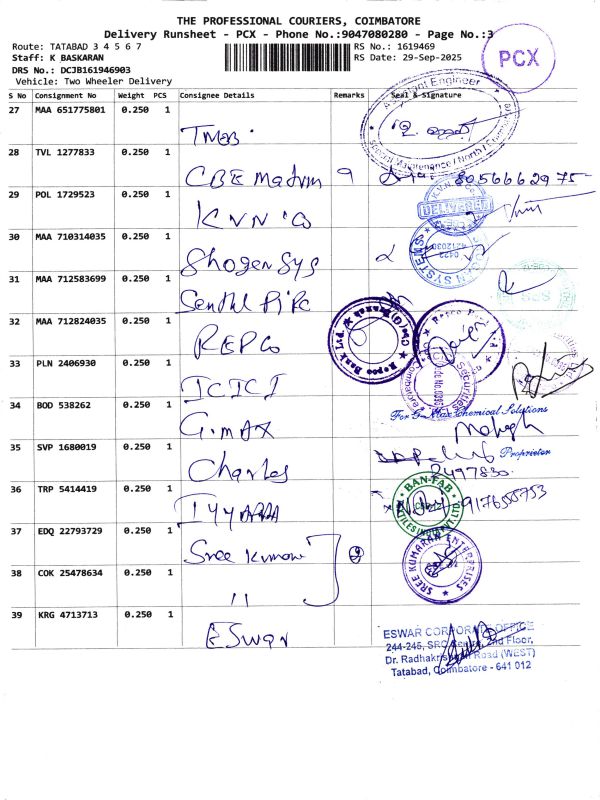 THE PROFESSIONAL COURIERS, COIMBATORE
Delivery Runsheet - PCX - Phone No.:9047080280 - Page No.:3
Route: TATABAD 3 4 5 6 7
RS No.: 1619469
Staff: K BASKARAN
RS Date: 29-Sep-2025
DRS No.: DCJB161946903
Vehicle: Two Wheeler Delivery
PCX
S No Consignment No Weight PCS Consignee Details Remarks Seal & Signature
27 MAA 651775801 0.250 1
Assistant Engineer
28 TVL 1277833 0.250 1 CBE Madum 9
29 POL 1729523 0.250 1 KVN 'Co
DELIVERED
30 MAA 710314035 0.250 1 Shogen Sys
31 MAA 712583699 0.250 1 Senthil Pipe
32 MAA 712824035 0.250 1 REPCo
Repco Bank Ltd.
33 PLN 2406930 0.250 1 ICICI
34 BOD 538262 0.250 1 G.MAX
For G-Max Chemical Solutions
Mahesh
Proprietor
35 SVP 1680019 0.250 1 Charles
36 TRP 5414419 0.250 1 IYYAPPA
BAN-FAB
37 EDQ 22793729 0.250 1 Sree Kumaran
38 COK 25478634 0.250 1 "
SREE KUMARAN ENTERPRISES
39 KRG 4713713 0.250 1 ESwar
ESWAR CORPORATE OFFICE
244-245, SRC Centre, 2nd Floor,
Dr. Radhakrishnan Road (WEST)
Tatabad, Coimbatore - 641 012